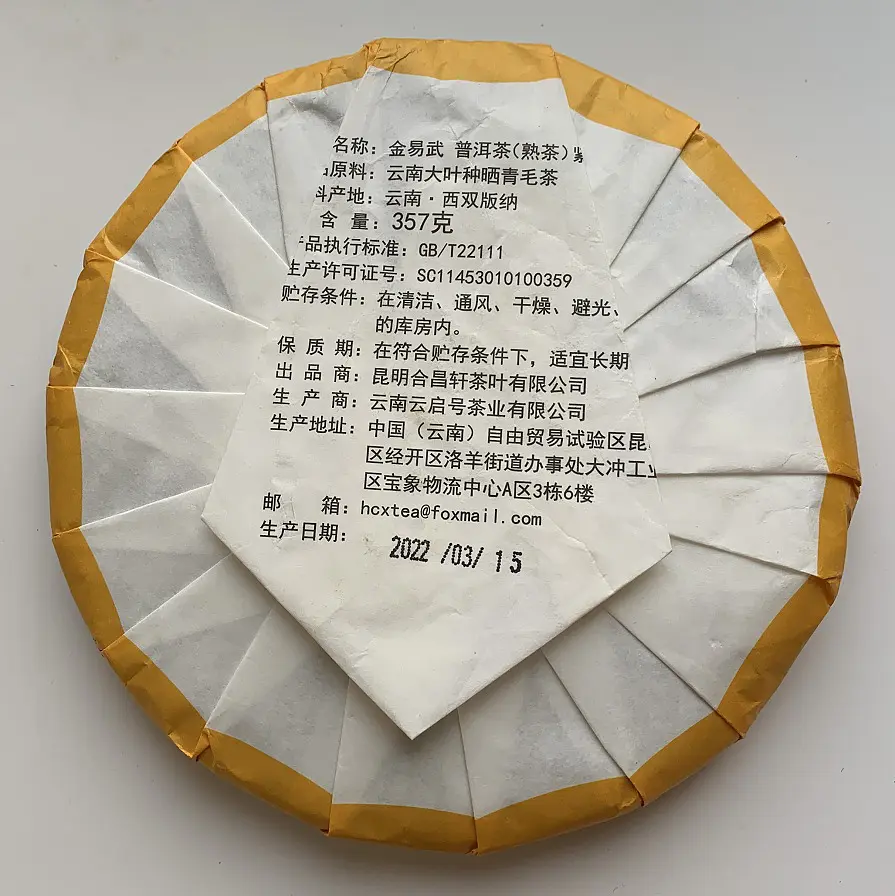 名称：金易武 普洱茶（熟茶）
原料：云南大叶种晒青毛茶
产地：云南·西双版纳
含 量：357克
品执行标准：GB/T22111
生产许可证号：SC11453010100359
贮存条件：在清洁、通风、干燥、避光、
的库房内。
保 质 期：在符合贮存条件下，适宜长期
出 品 商：昆明合昌轩茶叶有限公司
生 产 商：云南云启号茶业有限公司
生产地址：中国（云南）自由贸易试验区昆
区经开区洛羊街道办事处大冲工
区宝象物流中心A区3栋6楼
邮 箱：hcxtea@foxmail.com
生产日期：
2022 /03/ 15